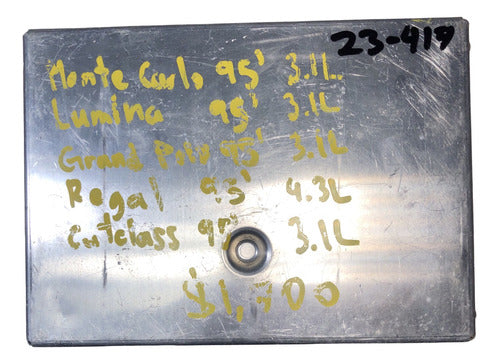 23-417
Monte Carlo 95' 3.1L
Lumina 95' 3.1L
Grand Prix 95' 3.1L
Regal 95' 4.3L
Cutclass 95' 3.1L
$1,700